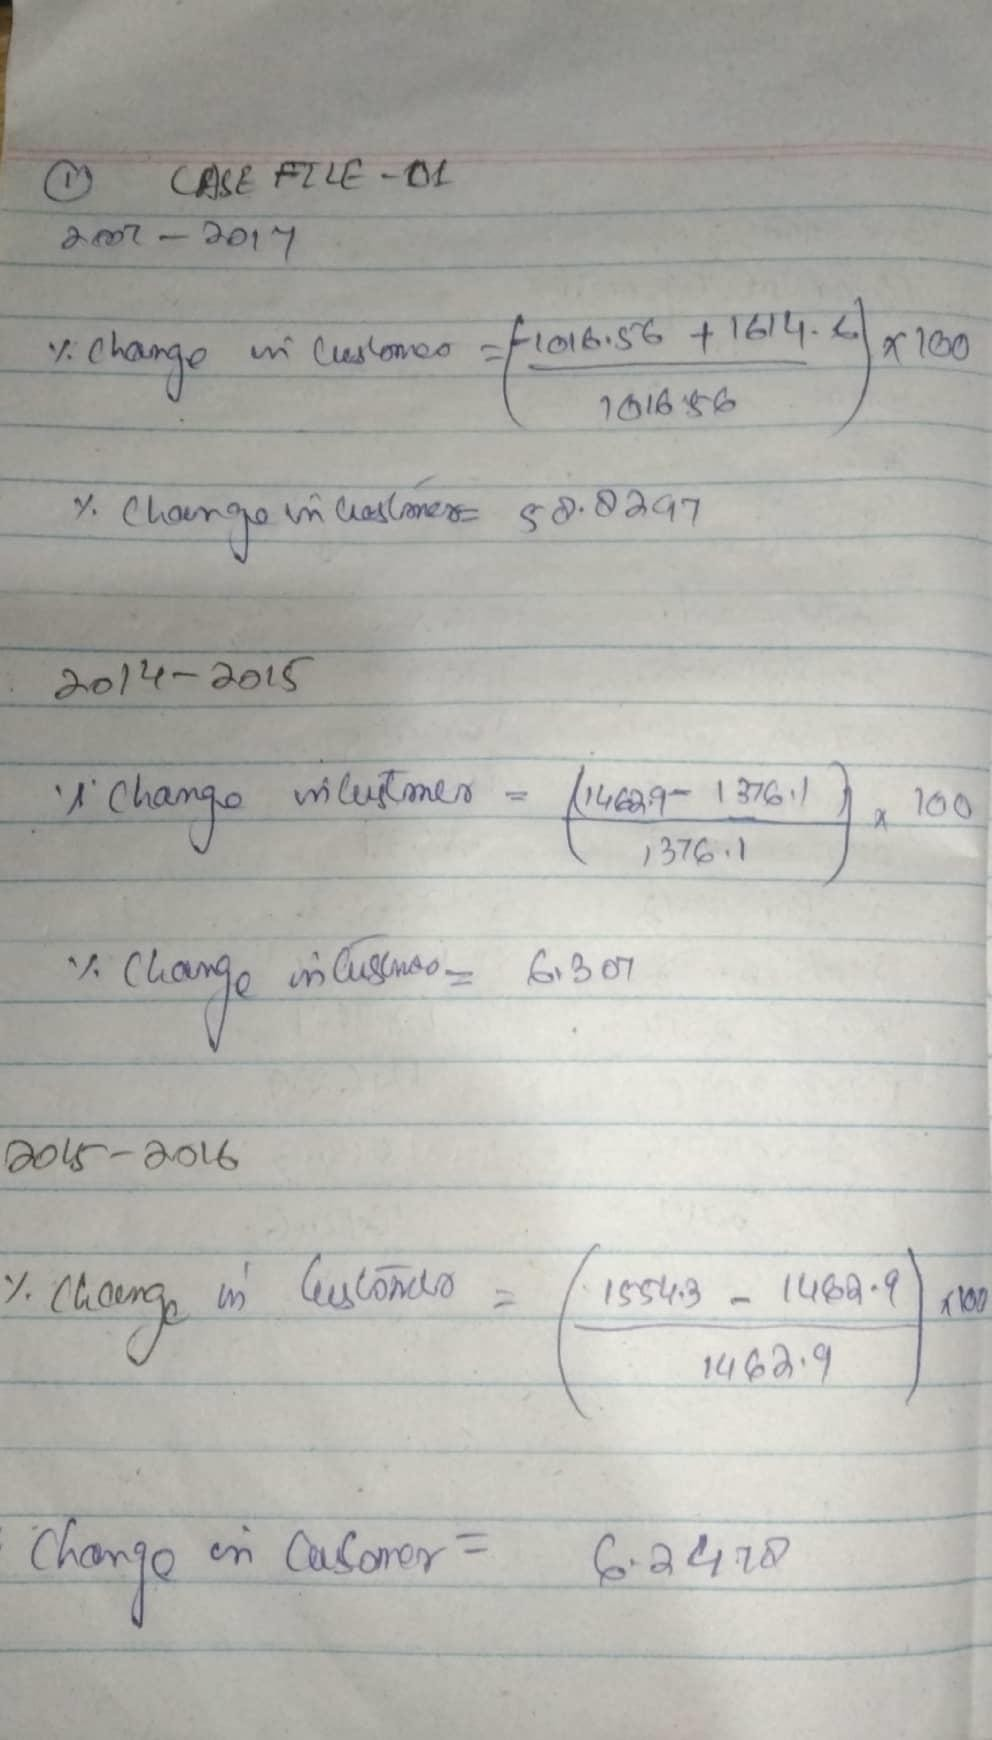 ① CASE FILE - 01
2002 - 2017
% Change in Customer = (-1016.56 + 1614.6 / 1016.56) × 100
% Change in Customer = 58.8297
2014 - 2015
% Change in Customer = (1462.9 - 1376.1 / 1376.1) × 100
% Change in Customer = 6.307
2015 - 2016
% Change in Customer = (1554.3 - 1462.9 / 1462.9) × 100
Change in Customer = 6.2478